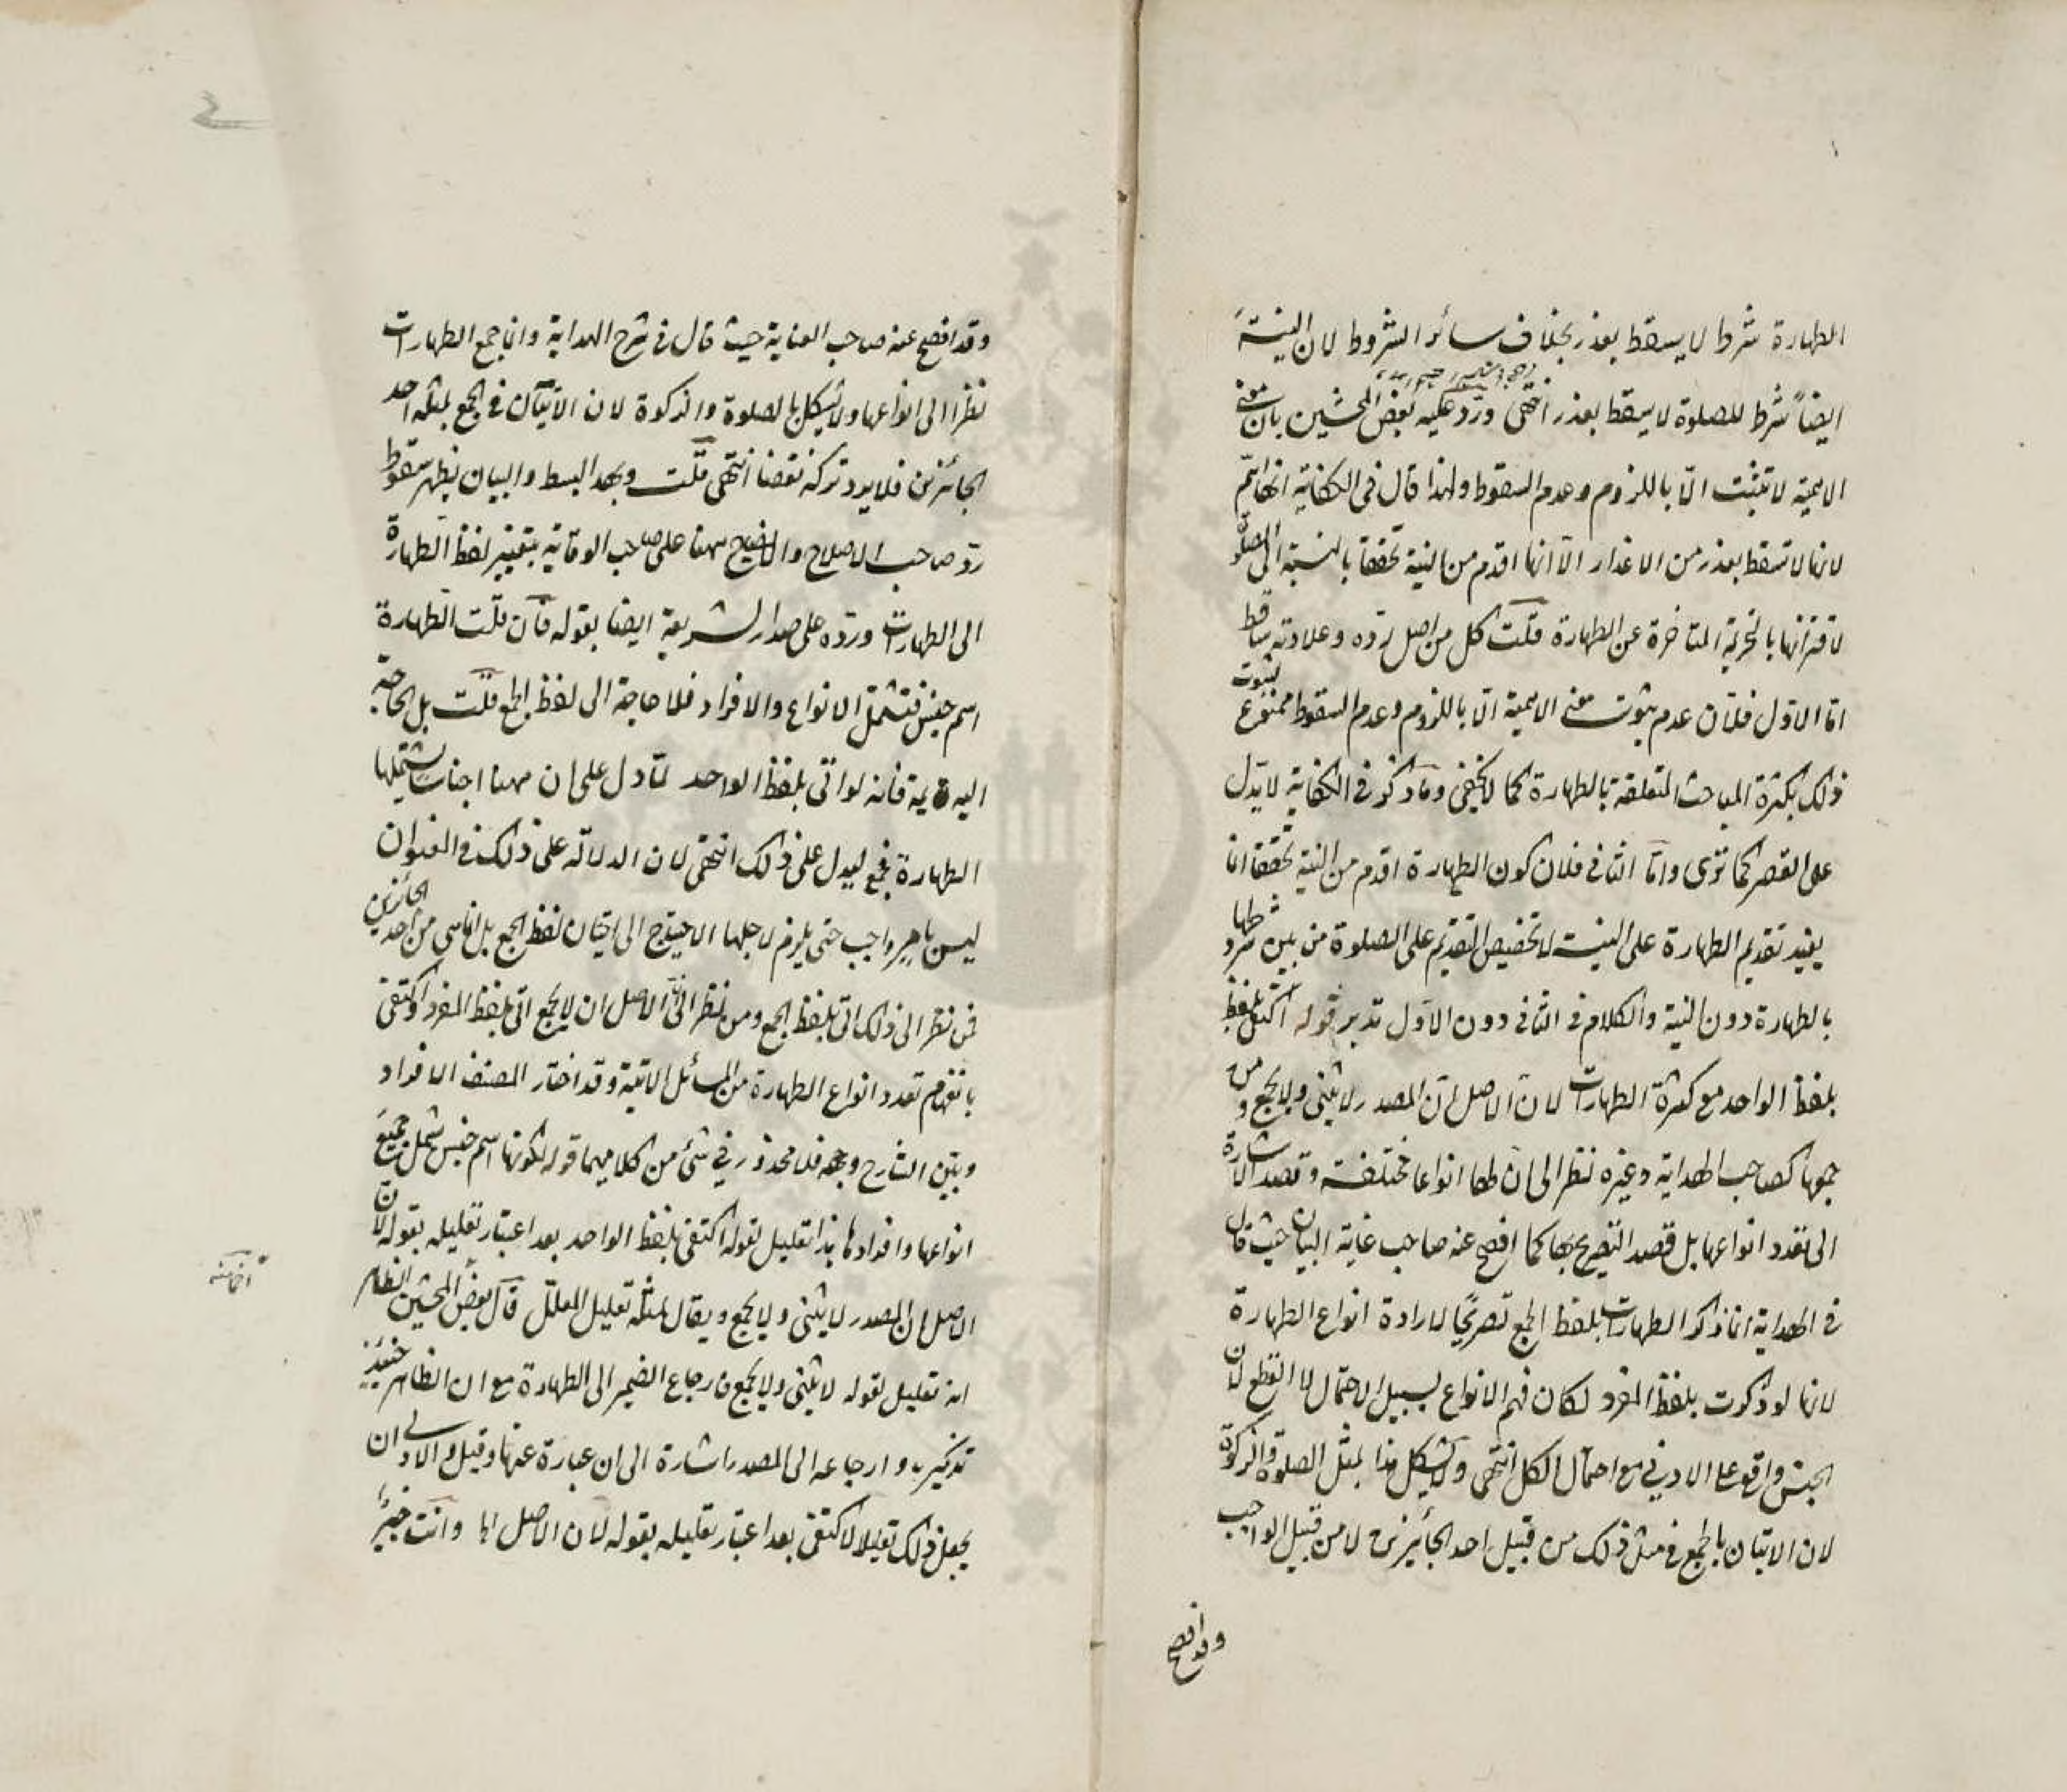 الطهارة شرط لا يسقط بعذر بخلاف سائر الشروط لان النية
ايضا شرط للصلوة لا يسقط بعذر انتهى وردّ عليه بعض المحشين بان معنى
الاهمية لا تثبت الّا باللزوم وعدم السقوط ولهذا قال فى الكفاية انها اهمّ
لانها لا تسقط بعذر من الاعذار الّا انها اقدم من النية تحققا بالنسبة الى الصلوة
لاقترانها بالتحريمة المتاخرة عن الطهارة قلت كل من اصل ردّه وعلاوته ساقط
امّا الاوّل فلان عدم ثبوت معنى الاهمية الّا باللزوم وعدم السقوط ممنوع لثبوت
ذلك بكثرة المباحث المتعلقة بالطهارة كما لا يخفى وما ذكر فى الكفاية لا يدل
على القصر كما ترى وامّا الثانى فلان كون الطهارة اقدم من النية تحققا انما
يفيد تقديم الطهارة على النية لا تخصيص التقديم على الصلوة من بين شروطها
بالطهارة دون النية والكلام فى الثانى دون الاوّل تدبر قوله اكتفى بلفظ
بلفظ الواحد مع كثرة الطهارات لان الاصل ان المصدر لا يثنى ولا يجمع ومن
جمعها كصاحب الهداية وغيره نظر الى ان لها انواعا مختلفة وقصد الاشارة
الى تعدد انواعها بل قصد التصريح بها كما افصح عنه صاحب غاية البيان حيث قال
فى الهداية انما ذكر الطهارات بلفظ الجمع تصريحا لارادة انواع الطهارة
لانها لو ذكرت بلفظ المفرد لكان فهم الانواع بسبيل الاحتمال لا القطع لان
الجنس واقع على الادنى مع احتمال الكل انتهى ولا يشكل هذا بمثل الصلوة والزكوة
لان الاتيان بالجمع فى مثل ذلك من قبيل احد الجائزين لا من قبيل الواجب
وقد افصح
وقد افصح عنه صاحب العناية حيث قال فى شرح الهداية وانما جمع الطهارات
نظرا الى انواعها ولا يشكل بالصلوة والزكوة لان الاتيان فى الجمع بمثله احد
الجائزين فلا يرد تركه نقضا انتهى قلت وبهذا البسط والبيان يظهر سقوط
ردّ صاحب الاصلاح والايضاح ههنا على صاحب الوقاية بتغيير لفظ الطهارة
الى الطهارات وردّه على صدر الشريعة ايضا بقوله فان قلت الطهارة
اسم جنس فتشمل الانواع والافراد فلا حاجة الى لفظ الجمع قلت بل الحاجة
اليه فانه لو اتى بلفظ الواحد لما دل على ان ههنا اجناسا يشتملها
الطهارة فجمع ليدل على ذلك انتهى لان الدلالة على ذلك فى العنوان
ليس بامر واجب حتى يلزم لاجلها الاحتياج الى اتيان لفظ الجمع بل انما هى من احد الجائزين
فمن نظر الى ذلك اتى بلفظ الجمع ومن نظر الى ان الاصل ان لا يجمع اتى بلفظ المفرد واكتفى
بانفهام تعدد انواع الطهارة من المسائل الاتية وقد اختار المصنف الافراد
وبيّن الشارح وجهه فلا محذور فى شئ من كلاميهما قوله لكونها اسم جنس شمل جميع
انواعها وافرادها هذا تعليل لقوله اكتفى بلفظ الواحد بعد اعتبار تعليله بقوله لان
الاصل ان المصدر لا يثنى ولا يجمع ويقال لمثله تعليل المعلّل قال بعض المحشين الظاهر
انه تعليل لقوله لا يثنى ولا يجمع بارجاع الضمير الى الطهارة مع ان الظاهر حينئذ
تذكيره وارجاعه الى المصدر اشارة الى ان عبارة عنها وقيل والاولى ان
يجعل ذلك تعليلا لاكتفى بعد اعتبار تعليله بقوله لان الاصل الخ وانت خبير